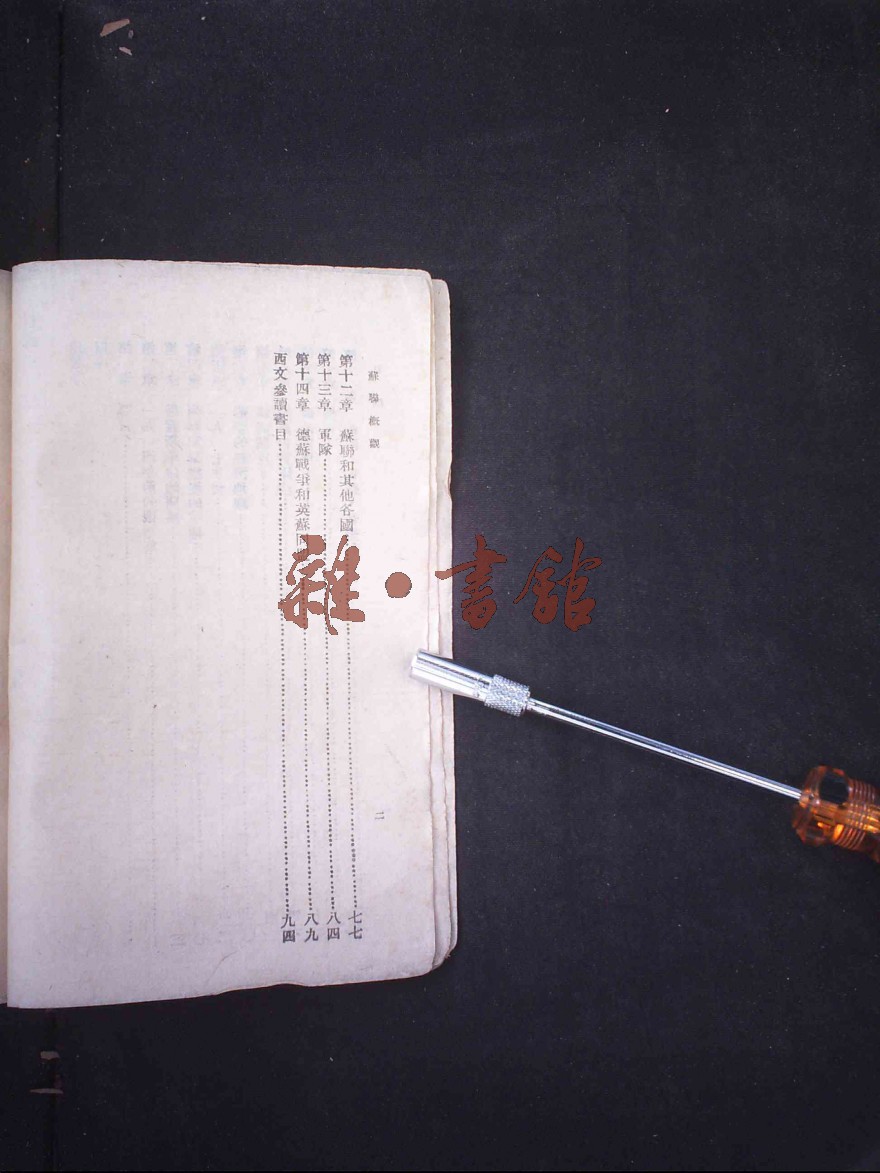 蘇聯概觀
二
第十二章 蘇聯和其他各國……七七
第十三章 軍隊……八四
第十四章 德蘇戰爭和英蘇……八九
西文參讀書目……九四
雜·書館